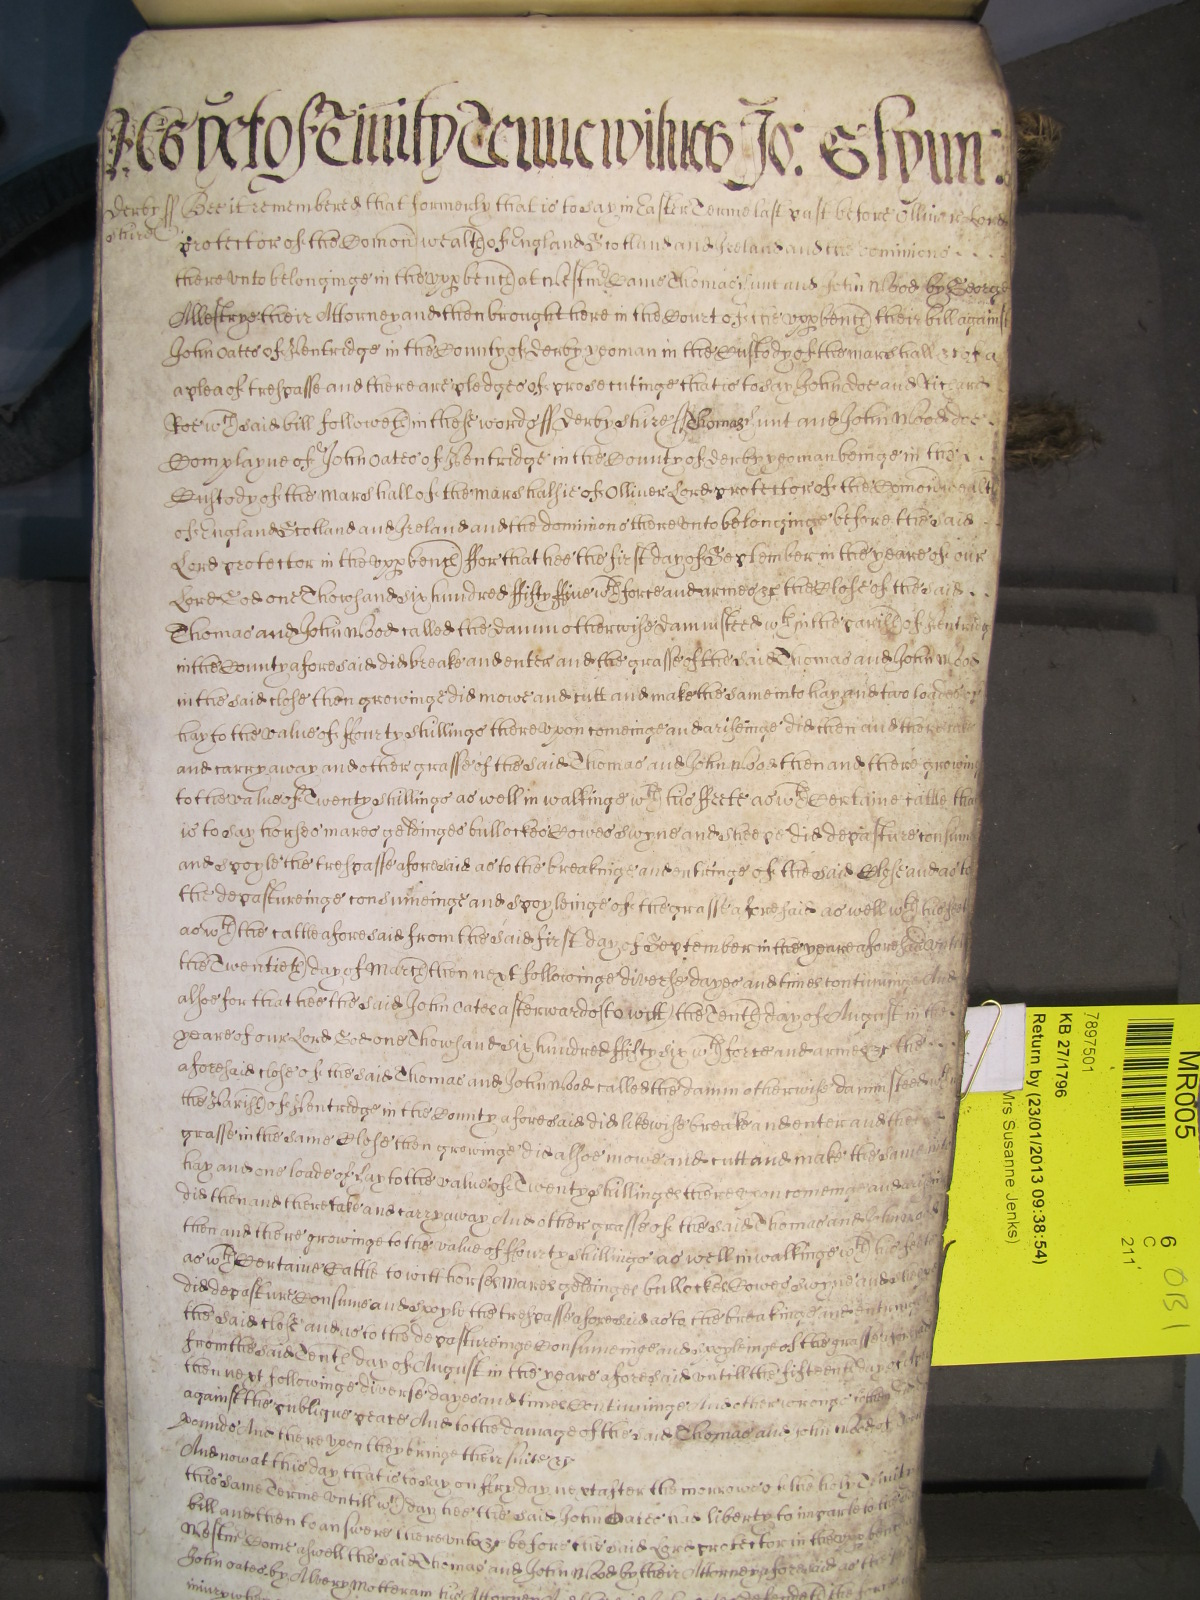 yet of Trinity Terme witnes Jo: Glynn:
Derby ss Bee it remembred that formerly that is to say in Easter Terme last past before Olliver Lord
Protector of the Comon wealth of England Scotland and Ireland and the dominions
there unto belonginge in the upp bench at Westmr Came Thomas Hunt and John Wood by George
Allestrye their Attorney and then brought here in the Court of the upp bench their bill against
John Oates of Pentridge in the County of derby yeoman in the Custody of the marshall &c of a
a plea of trespasse and there are pledges of prosecutinge that is to say John doe and Richard
Roe wch said bill followeth in these words ss derbyshire ss Thomas Hunt and John Wood doe
Complayne of John Oates of Pentridge in the County of derby yeoman beinge in the
Custody of the marshall of the marshalsie of Olliver Lord protector of the Comonwealth
of England Scotland and Ireland and the dominions there unto belonginge before the said
Lord protector in the upp bench ffor that hee the first day of September in the yeare of our
Lord God one Thowsand six hundred ffifty ffive wth force and armes &c the Close of the said
Thomas and John Wood called the damm otherwise damsteed wthin the parish of Pentridge
in the County aforesaid did breake and enter and the grasse of the said Thomas and John Wood
in the said close then growinge did mowe and cutt and make the same into hay and two loades of
hay to the value of ffourty shillings thereupon comeinge and ariseinge did then and there take
and carry away and other grasse of the said Thomas and John Wood then and there growing
to the value of Twenty shillings as well in walkinge wth his ffeete as wth Certaine cattle that
is to say horses mares geldinges bullockes Cowes swyne and sheepe did depasture consume
and spoyle the trespasse aforesaid as to the breakinge and entringe of the said Close and as to
the depastureinge consumeinge and spoyleinge of the grasse aforesaid as well wth his feet
as wth the cattle aforesaid from the said first day of September in the yeare aforesaid untill
the Twentieth day of March then next followinge diverse dayes and times continuinge And
alsoe for that hee the said John Oates afterwards to witt the Tenth day of August in the
yeare of our Lord God one Thowsand six hundred ffifty six wth force and armes &c the
aforesaid close of the said Thomas and John Wood called the damm otherwise damsteed wthin
the Parish of Pentridge in the County aforesaid did likewise breake and enter and the
grasse in the same Close then growinge did alsoe mowe and cutt and make the same into
hay and one loade of hay to the value of Twenty shillinges thereupon comeinge and ariseing
did then and there take and carry away And other grasse of the said Thomas and John Wood
then and there growinge to the value of ffourty shillings as well in walkinge wth his feete
as wth Certaine Cattle to witt horses mares geldinges bullockes Cowes swyne and sheepe
did depasture Consume and spoyle the trespasse aforesaid as to the breakinge and entringe
the said close and as to the depastureinge Consumeinge and spoyleinge of the grasse aforesaid
from the said Tenth day of August in the yeare aforesaid untill the fifteenth day of
then next followinge diverse dayes and times Continuinge And other wronges
against the publique peace And to the damage of the said Thomas and John Wood of
pounds And thereupon they bringe their suite &c
And now at this day that is to say on ffryday next after the morrowe of the holy Trinity
this same Terme untill wch day hee the said John Oates had liberty to imparle to the
bill and then to answere thereunto &c before the said Lord protector in the upp bench
Westmr Come aswell the said Thomas and John Wood by their Attorney aforesaid as the
John Oates by Avery Motteram his Attorney And
MR005
6
C
211
OB 1
7897501
KB 27/1796
Return by (23/01/2013 09:38:54)
Mrs Susanne Jenks)